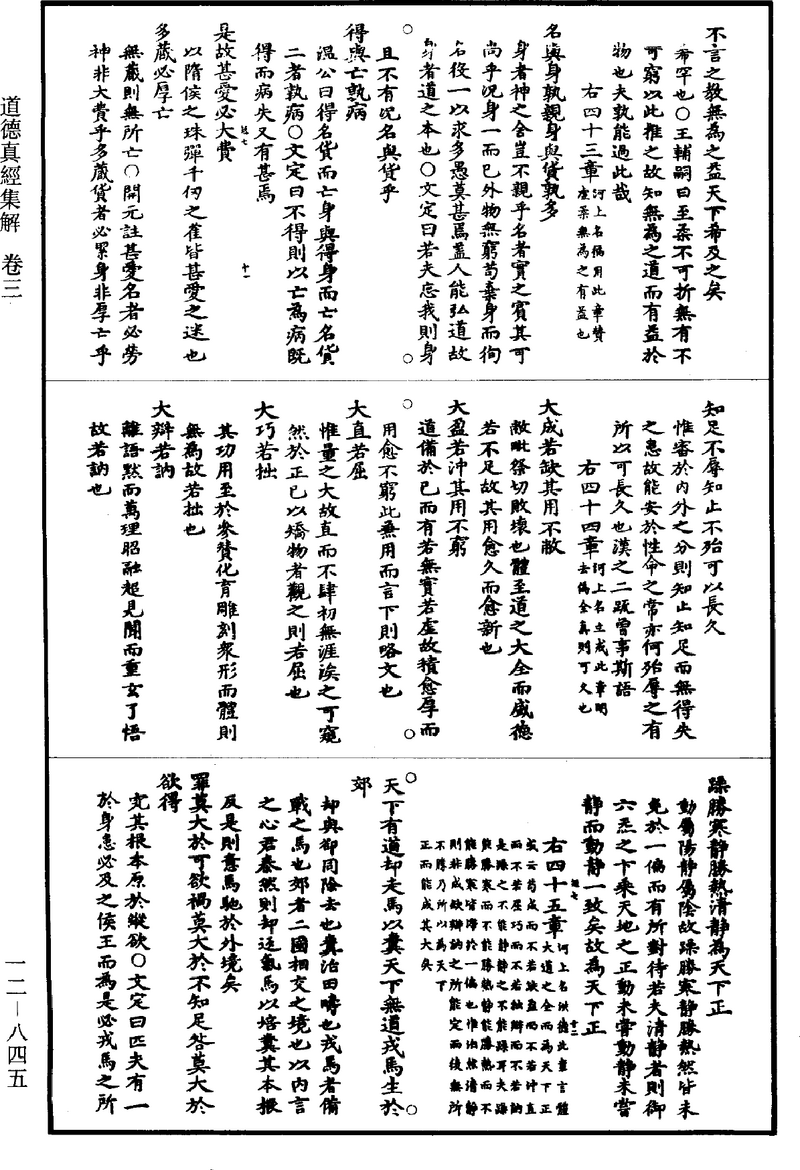 道德真經集解 卷三
一二－八四五
不言之教無為之益天下希及之矣
希罕也○王輔嗣曰至柔不可折無有不
可窮以此推之故知無為之道而有益於
物也夫孰能過此哉
右四十三章河上名徧用此章贊虛柔無為之有益也
名與身孰親身與貨孰多
身者神之舍豈不親乎名者實之賓其可
尚乎況身一而已外物無窮苟棄身而徇
名役一以求多愚莫甚焉蓋人能弘道故
身者道之本也○文定曰若夫忘我則身
且不有況名與貨乎
得與亡孰病
溫公曰得名貨而亡身與得身而亡名貨
二者孰病○文定曰不得則以亡為病既
得而病失又有甚焉
是故甚愛必大費
以隋侯之珠彈千仞之雀皆甚愛之迷也
多藏必厚亡
無藏則無所亡○開元註甚愛名者必勞
神非大費乎多藏貨者必累身非厚亡乎
知足不辱知止不殆可以長久
惟審於內外之分則知止知足而無得失
之患故能安於性命之常亦何殆辱之有
所以可長久也漢之二疏嘗事斯語
右四十四章河上名立戒此章明去偽全真則可久也
大成若缺其用不敝
敝毗祭切敗壞也體至道之大全而盛德
若不足故其用愈久而愈新也
大盈若沖其用不窮
道備於已而有若無實若虛故積愈厚而
用愈不窮此兼用而言下則略文也
大直若屈
惟量之大故直而不肆初無涯涘之可窺
然於正已以矯物者觀之則若屈也
大巧若拙
其功用至於參贊化育雕刻衆形而體則
無為故若拙也
大辯若訥
離語默而萬理昭融超見聞而重玄了悟
故若訥也
躁勝寒靜勝熱清靜為天下正
動屬陽靜屬陰故躁勝寒靜勝熱然皆未
免於一偏而有所對待若夫清靜者則御
六炁之卞乘天地之正動未嘗動靜未嘗
靜而動靜一致矣故為天下正
右四十五章河上名洪德此章言體大道之全而為天下正
天下有道却走馬以糞天下無道戎馬生於
郊
却與卻同除去也糞治田疇也戎馬者備
戰之馬也郊者二國相交之境也以內言
之心君泰然則却返氣馬以培糞其本根
及是則意馬馳於外境矣
罪莫大於可欲禍莫大於不知足咎莫大於
欲得
究其根本原於縱欲○文定曰匹夫有一
於身患必及之侯王而為是必戎馬之所